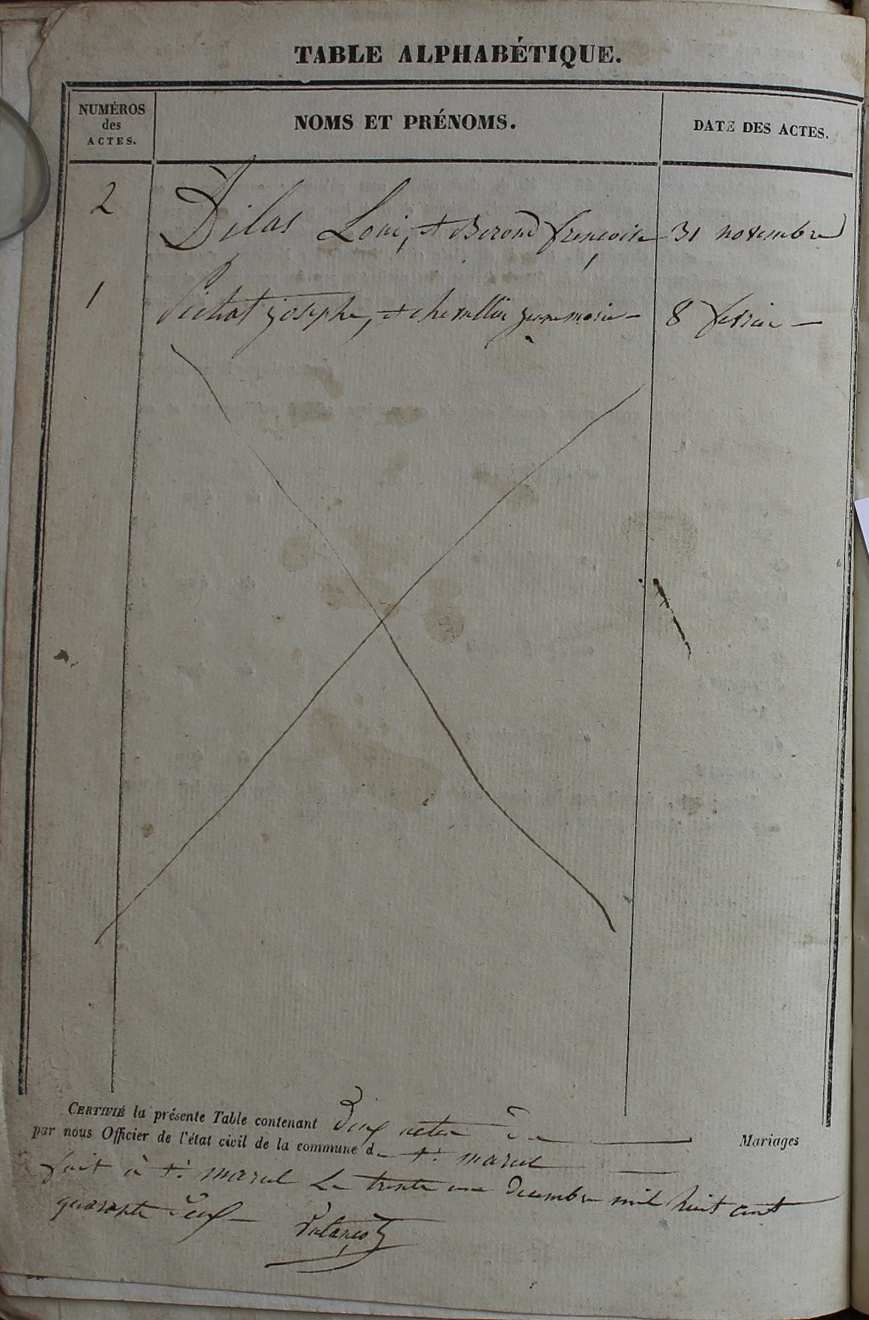 TABLE ALPHABÉTIQUE.
NUMÉROS des ACTES.
NOMS ET PRÉNOMS.
DATE DES ACTES.
2 Dilas Loui, et Berond françoise 31 novembre
1 Pichat josephe, et chevallier jeanne marie 8 fevrier
CERTIFIÉ la présente Table contenant Deux actes de Mariages
par nous Officier de l'état civil de la commune d St marcel
fait à St marcel Le trente un Decembre mil huit cent
quarante deux